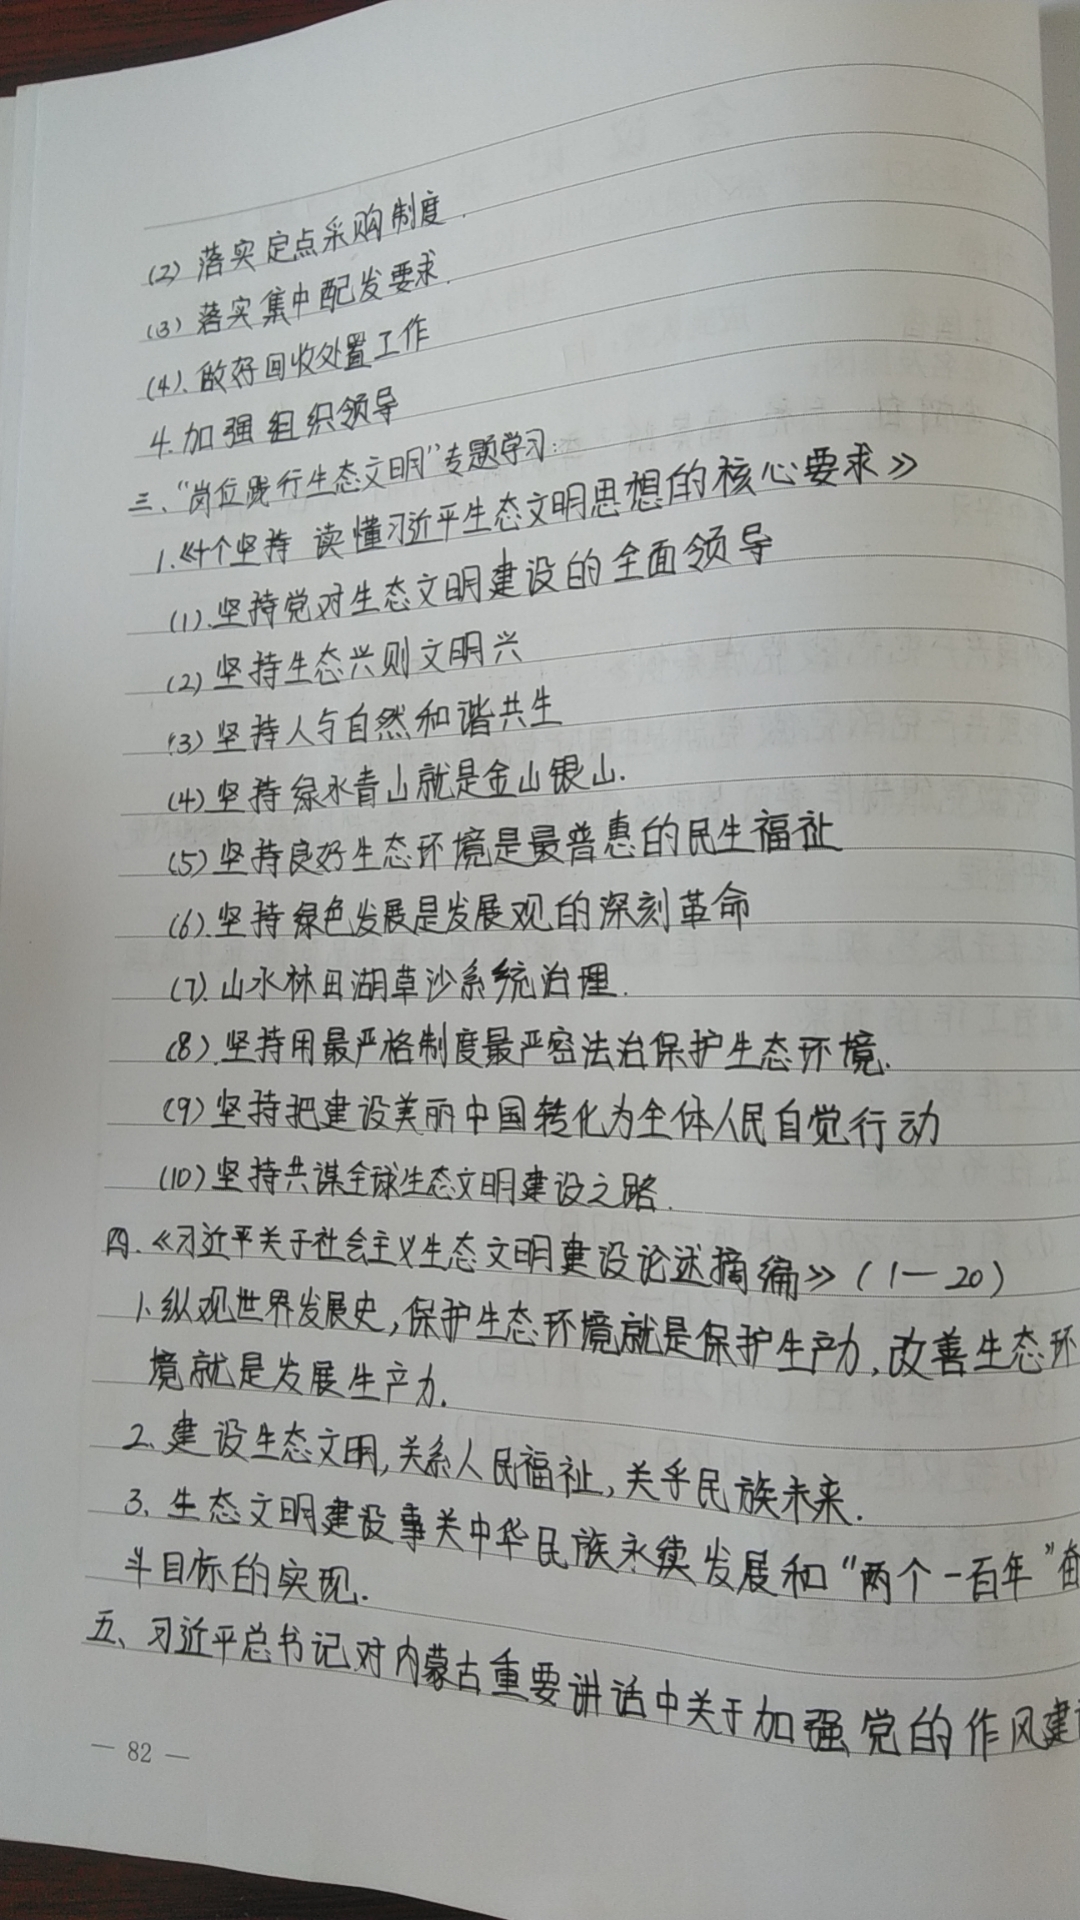 (2) 落实定点采购制度.
(3) 落实集中配发要求.
(4). 做好回收处置工作
4. 加强组织领导
三、“岗位践行生态文明”专题学习:
1.《十个坚持 读懂习近平生态文明思想的核心要求》
(1). 坚持党对生态文明建设的全面领导
(2) 坚持生态兴则文明兴
(3) 坚持人与自然和谐共生
(4) 坚持绿水青山就是金山银山.
(5) 坚持良好生态环境是最普惠的民生福祉
(6). 坚持绿色发展是发展观的深刻革命
(7). 山水林田湖草沙系统治理.
(8). 坚持用最严格制度最严密法治保护生态环境.
(9) 坚持把建设美丽中国转化为全体人民自觉行动
(10) 坚持共谋全球生态文明建设之路.
四.《习近平关于社会主义生态文明建设论述摘编》(1—20)
1. 纵观世界发展史,保护生态环境就是保护生产力,改善生态环
境就是发展生产力.
2. 建设生态文明,关系人民福祉,关乎民族未来.
3. 生态文明建设事关中华民族永续发展和“两个一百年”奋
斗目标的实现.
五、习近平总书记对内蒙古重要讲话中关于加强党的作风建
— 82 —